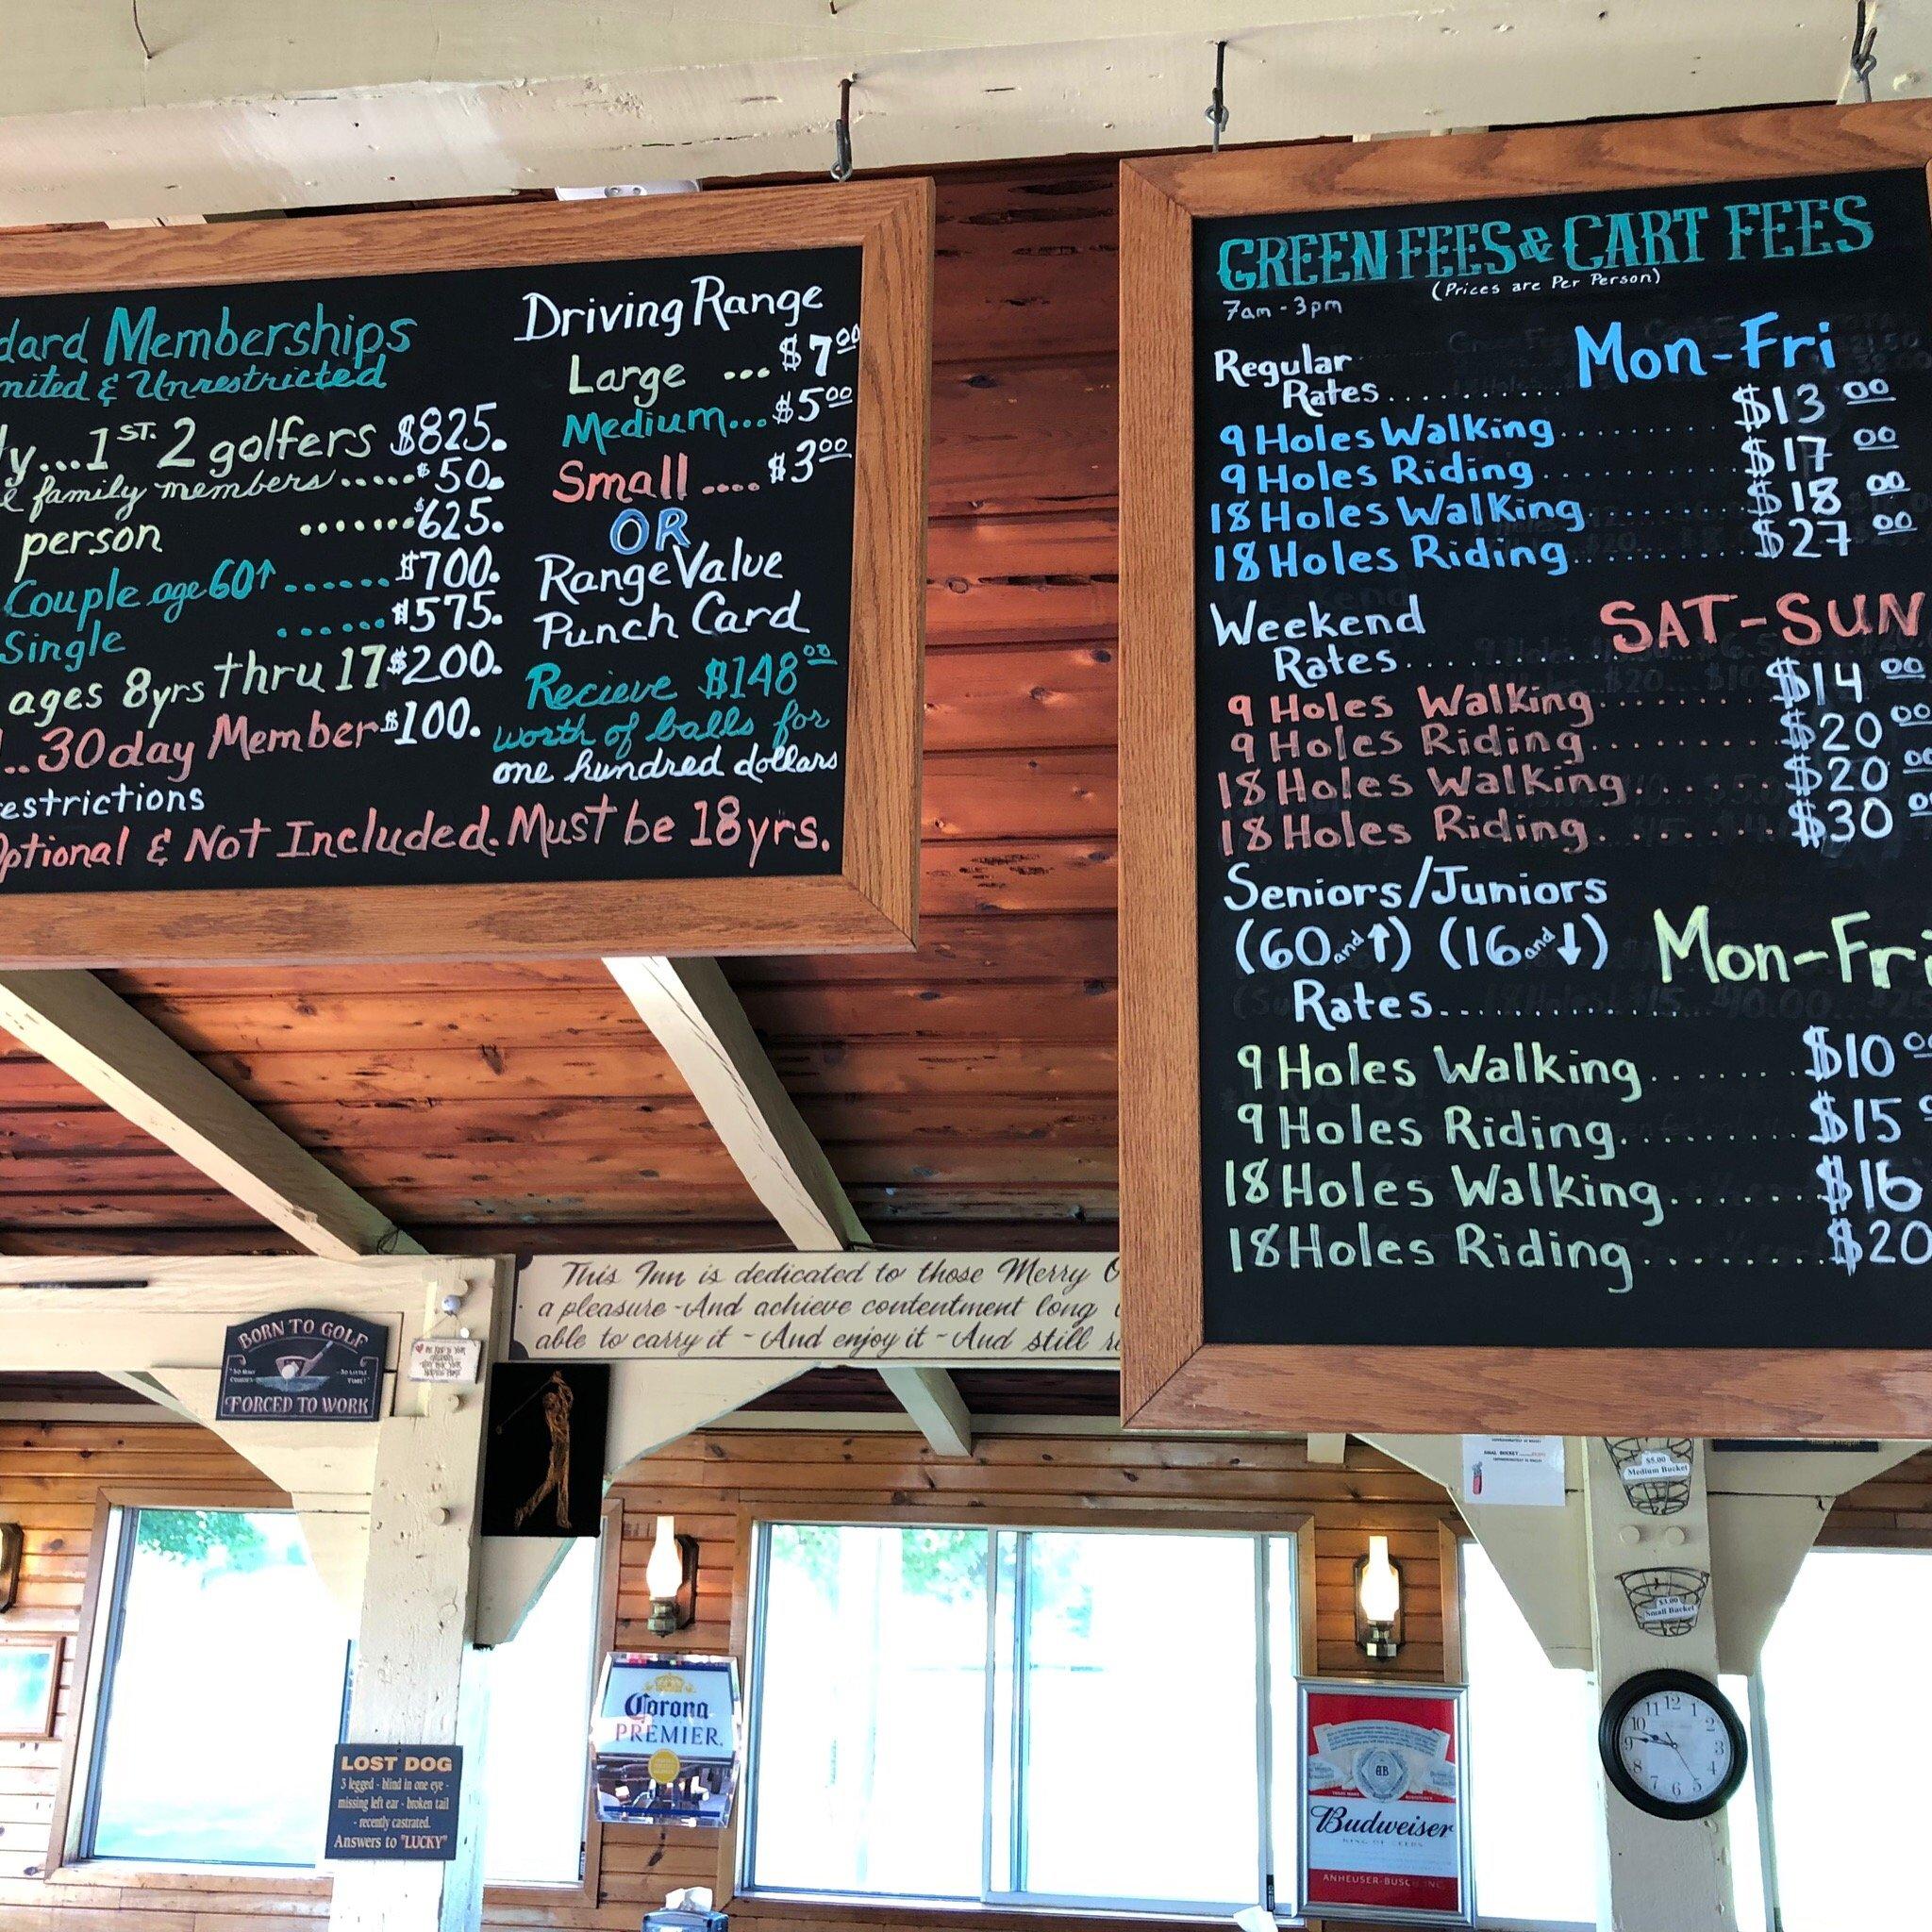 dard Memberships
mited & Unrestricted
y...1ST. 2 golfers $825.
family members.....$50.
person .......$625.
Couple age 60↑......$700.
Single ......$575.
ages 8yrs thru 17 $200.
..30day Member $100.
estrictions
Optional & Not Included. Must be 18yrs.
Driving Range
Large ... $7.00
Medium... $5.00
Small .... $3.00
OR
Range Value
Punch Card
Recieve $148.00
worth of balls for
one hundred dollars
GREEN FEES & CART FEES
(Prices are Per Person)
7am - 3pm
Regular Mon-Fri
Rates..........
9 Holes Walking........ $13 00
9 Holes Riding.......... $17 00
18 Holes Walking........ $18 00
18 Holes Riding......... $27 00
Weekend SAT-SUN
Rates..........
9 Holes Walking......... $14 00
9 Holes Riding.......... $20 00
18 Holes Walking....... $20 00
18 Holes Riding........ $30 0
Seniors/Juniors
(60 and ↑) (16 and ↓) Mon-Fri
Rates.............
9 Holes Walking....... $10 00
9 Holes Riding......... $15
18 Holes Walking....... $16
18 Holes Riding........ $20
This Inn is dedicated to those Merry
a pleasure - And achieve contentment long
able to carry it - And enjoy it - And still
BORN TO GOLF
"SO MANY COURSES" "SO LITTLE TIME!"
FORCED TO WORK
$5.00
Medium Bucket
$3.00
Small Bucket
Corona
PREMIER.
LOST DOG
3 legged - blind in one eye -
missing left ear - broken tail
- recently castrated.
Answers to "LUCKY"
Budweiser
KING OF BEERS
ANHEUSER-BUSCH, INC.
11 12 1
10 2
9 3
8 4
7 6 5